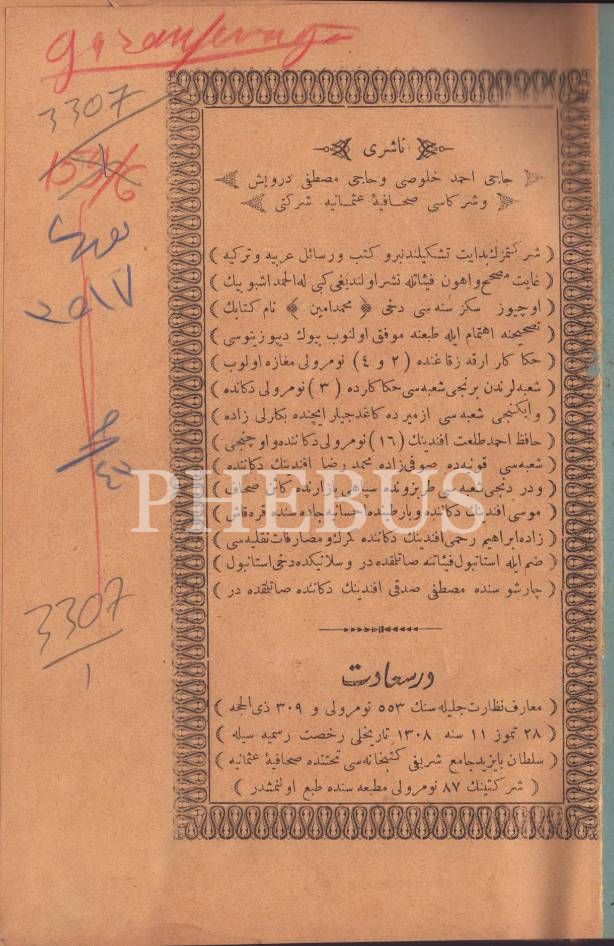 3307
ناشری
حاجی احمد خلوصی وحاجی مصطفی درویش
وشركاسی صحافیهٔ عثمانیه شركتی
( شركتمزك بدایت تشكیلندنبرو كتب و رسائل عربیه و تركیه )
( غایت مصحح و اهون فیئاتله نشر اولندیغی كبی له الحمد اشبو بیك )
( اوچیوز سكز سنه سی دخی ﴿ محمد امین ﴾ نام كتابك )
( تصحیحنه اهتمام ایله طبعنه موفق اولنوب بیوك دیپوزیتوسی )
( حكاكار ارقه زقاغنده (٢ و ٤) نومرولی مغازه اولوب )
( شعبه لرندن برنجی شعبه سی حكاكارده (٣) نومرولی دكانده )
( و ایكنجی شعبه سی ازمیرده كاغدجیلر ایچنده بكارلی زاده )
( حافظ احمد طلعت افندینك (١٦) نومرولی دكاننده و اوچنجی )
( شعبه سی قونیه ده صوفی زاده محمد رضا افندینك دكاننده )
( و دردنجی شعبه سی طربزونده سپاهی بازارنده كائن صحاف )
( موسی افندینك دكاننده و بارطینده احسانیه جاده سنده قره قاش )
( زاده ابراهیم رحمی افندینك دكاننده كمرك و مصارفات نقلیه سی )
( ضم ایله استانبول فیئاتنه صاتلقده در و سلانیكده دخی استانبول )
( چارشوسنده مصطفی صدقی افندینك دكاننده صاتلقده در )
PHEBUS
درسعادت
( معارف نظارت جلیله سنك ٥٥٣ نومرولی و ٣٠٩ ذی الحجه )
( ٢٨ تموز ١١ سنه ١٣٠٨ تاریخلی رخصت رسمیه سیله )
( سلطان بایزید جامع شریفی كتبخانه سی تحتنده صحافیهٔ عثمانیه )
( شركتینك ٨٧ نومرولی مطبعه سنده طبع اولنمشدر )
3307
١